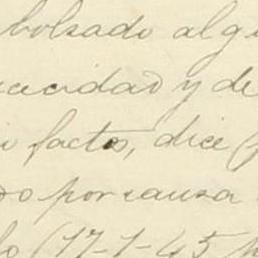 bolsado alg
cidad y de
facto, dice (
do por causa
(17-1-45 p